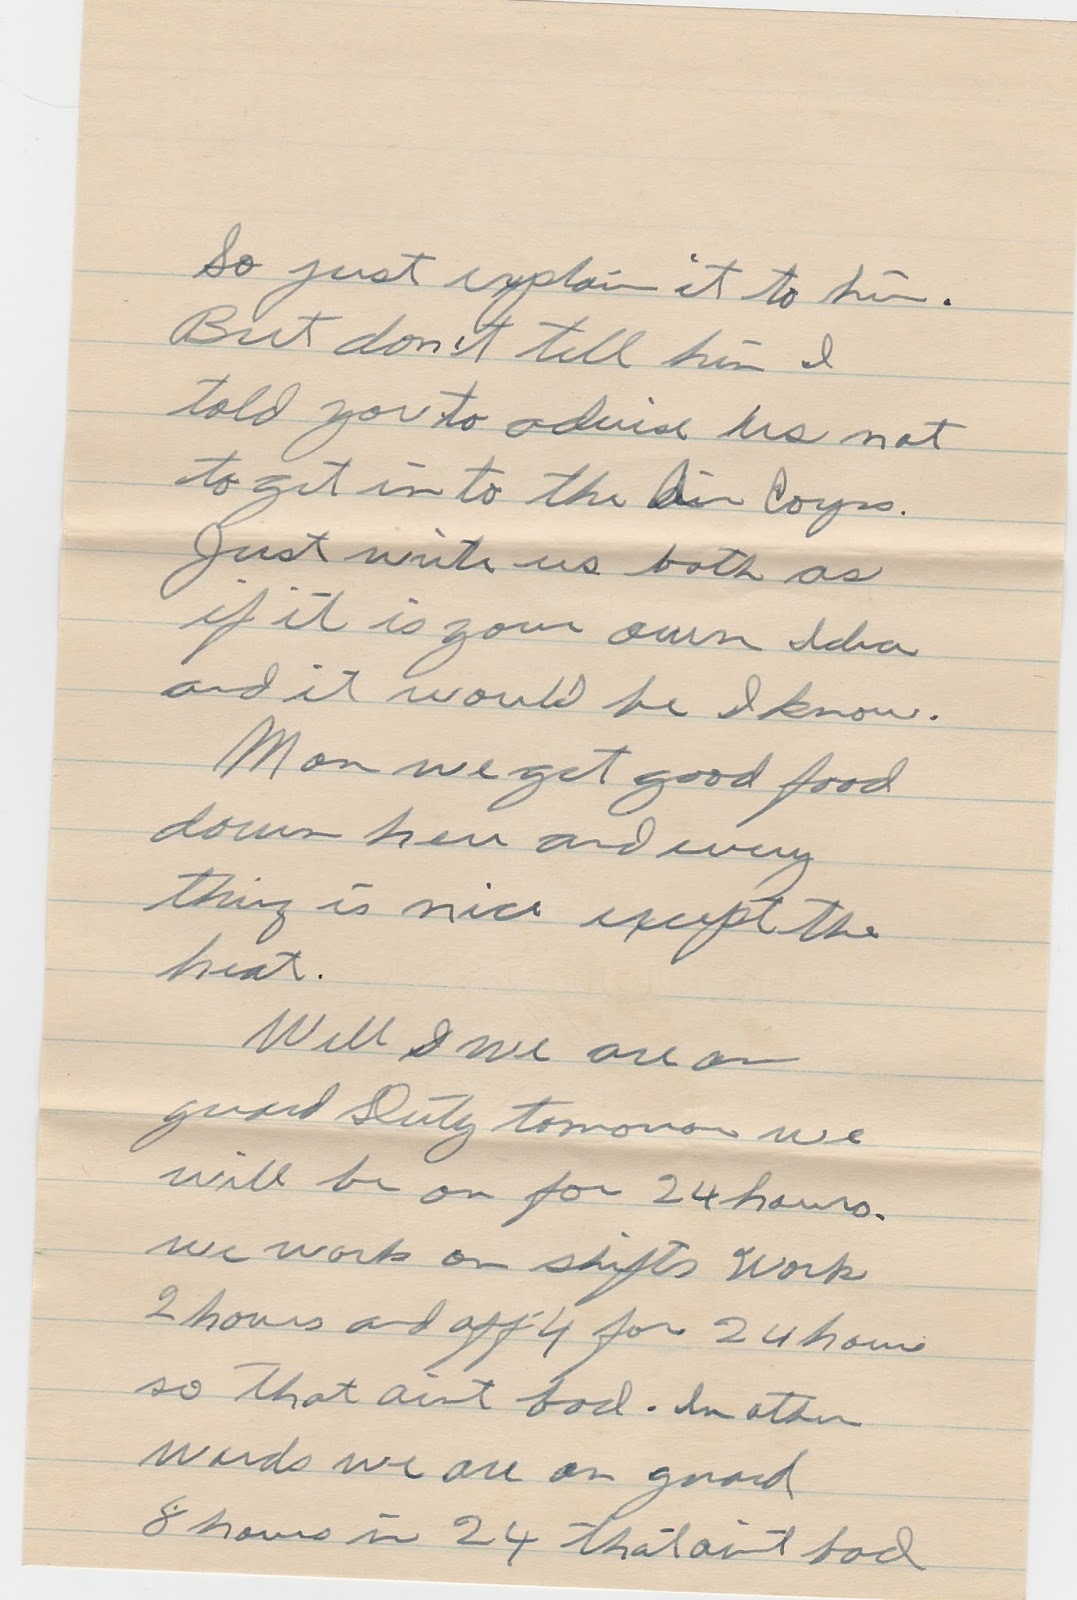 So just explain it to him.
But don't tell him I
told you to advise us not
to get in to the Air Corps.
Just write us both as
if it is your own Idea
and it would be I know.
Mom we get good food
down here and every
thing is nice except the
heat.
Well I we are on
guard Duty tomorrow we
will be on for 24 hours.
we work on shifts Work
2 hours and off 4 for 24 hours
so that aint bad. In other
words we are on guard
8 hours in 24 that aint bad